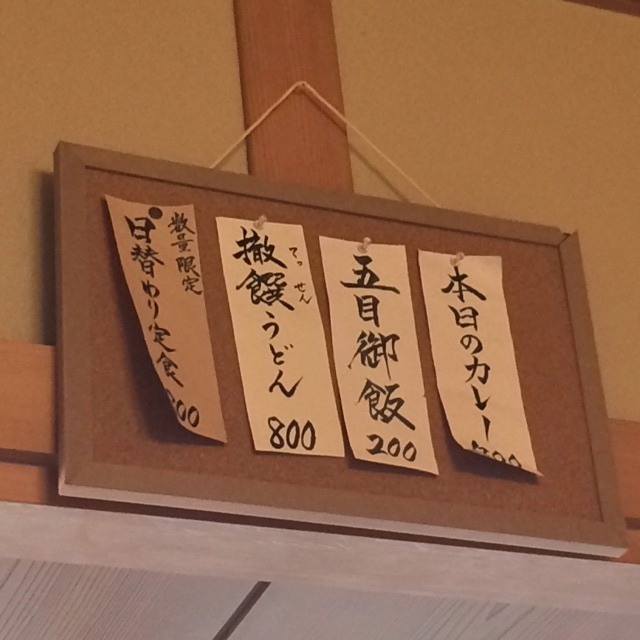 本日のカレー
五目御飯
200
撤饌うどん
てっせん
800
数量限定
日替わり定食